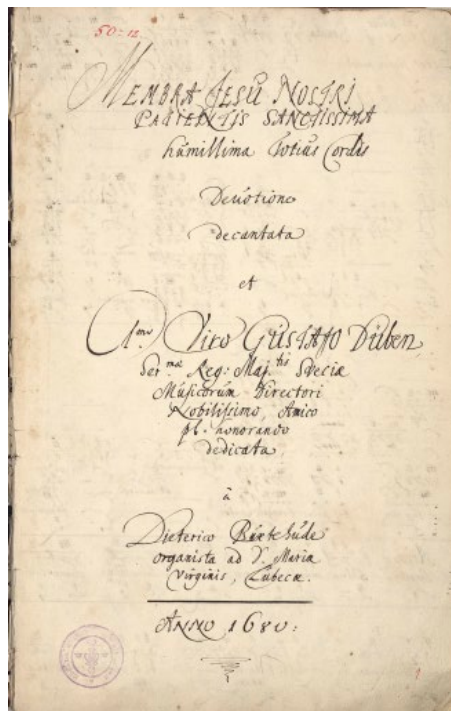 50:12.
MEMBRA JESU NOSTRI
PATIENTIS SANCTISSIMA
humillima Totius Cordis
Devotione
decantata
et
1mo Viro GUSTAVO Düben
Ser.mæ Reg: Maj.tis Sveciæ
Musicorum Directori
Nobilissimo, Amico
pl. honorando
dedicata
à
Dieterico Buxtehude
organista ad S. Mariæ
Virginis, Lubecæ.
ANNO 1680: